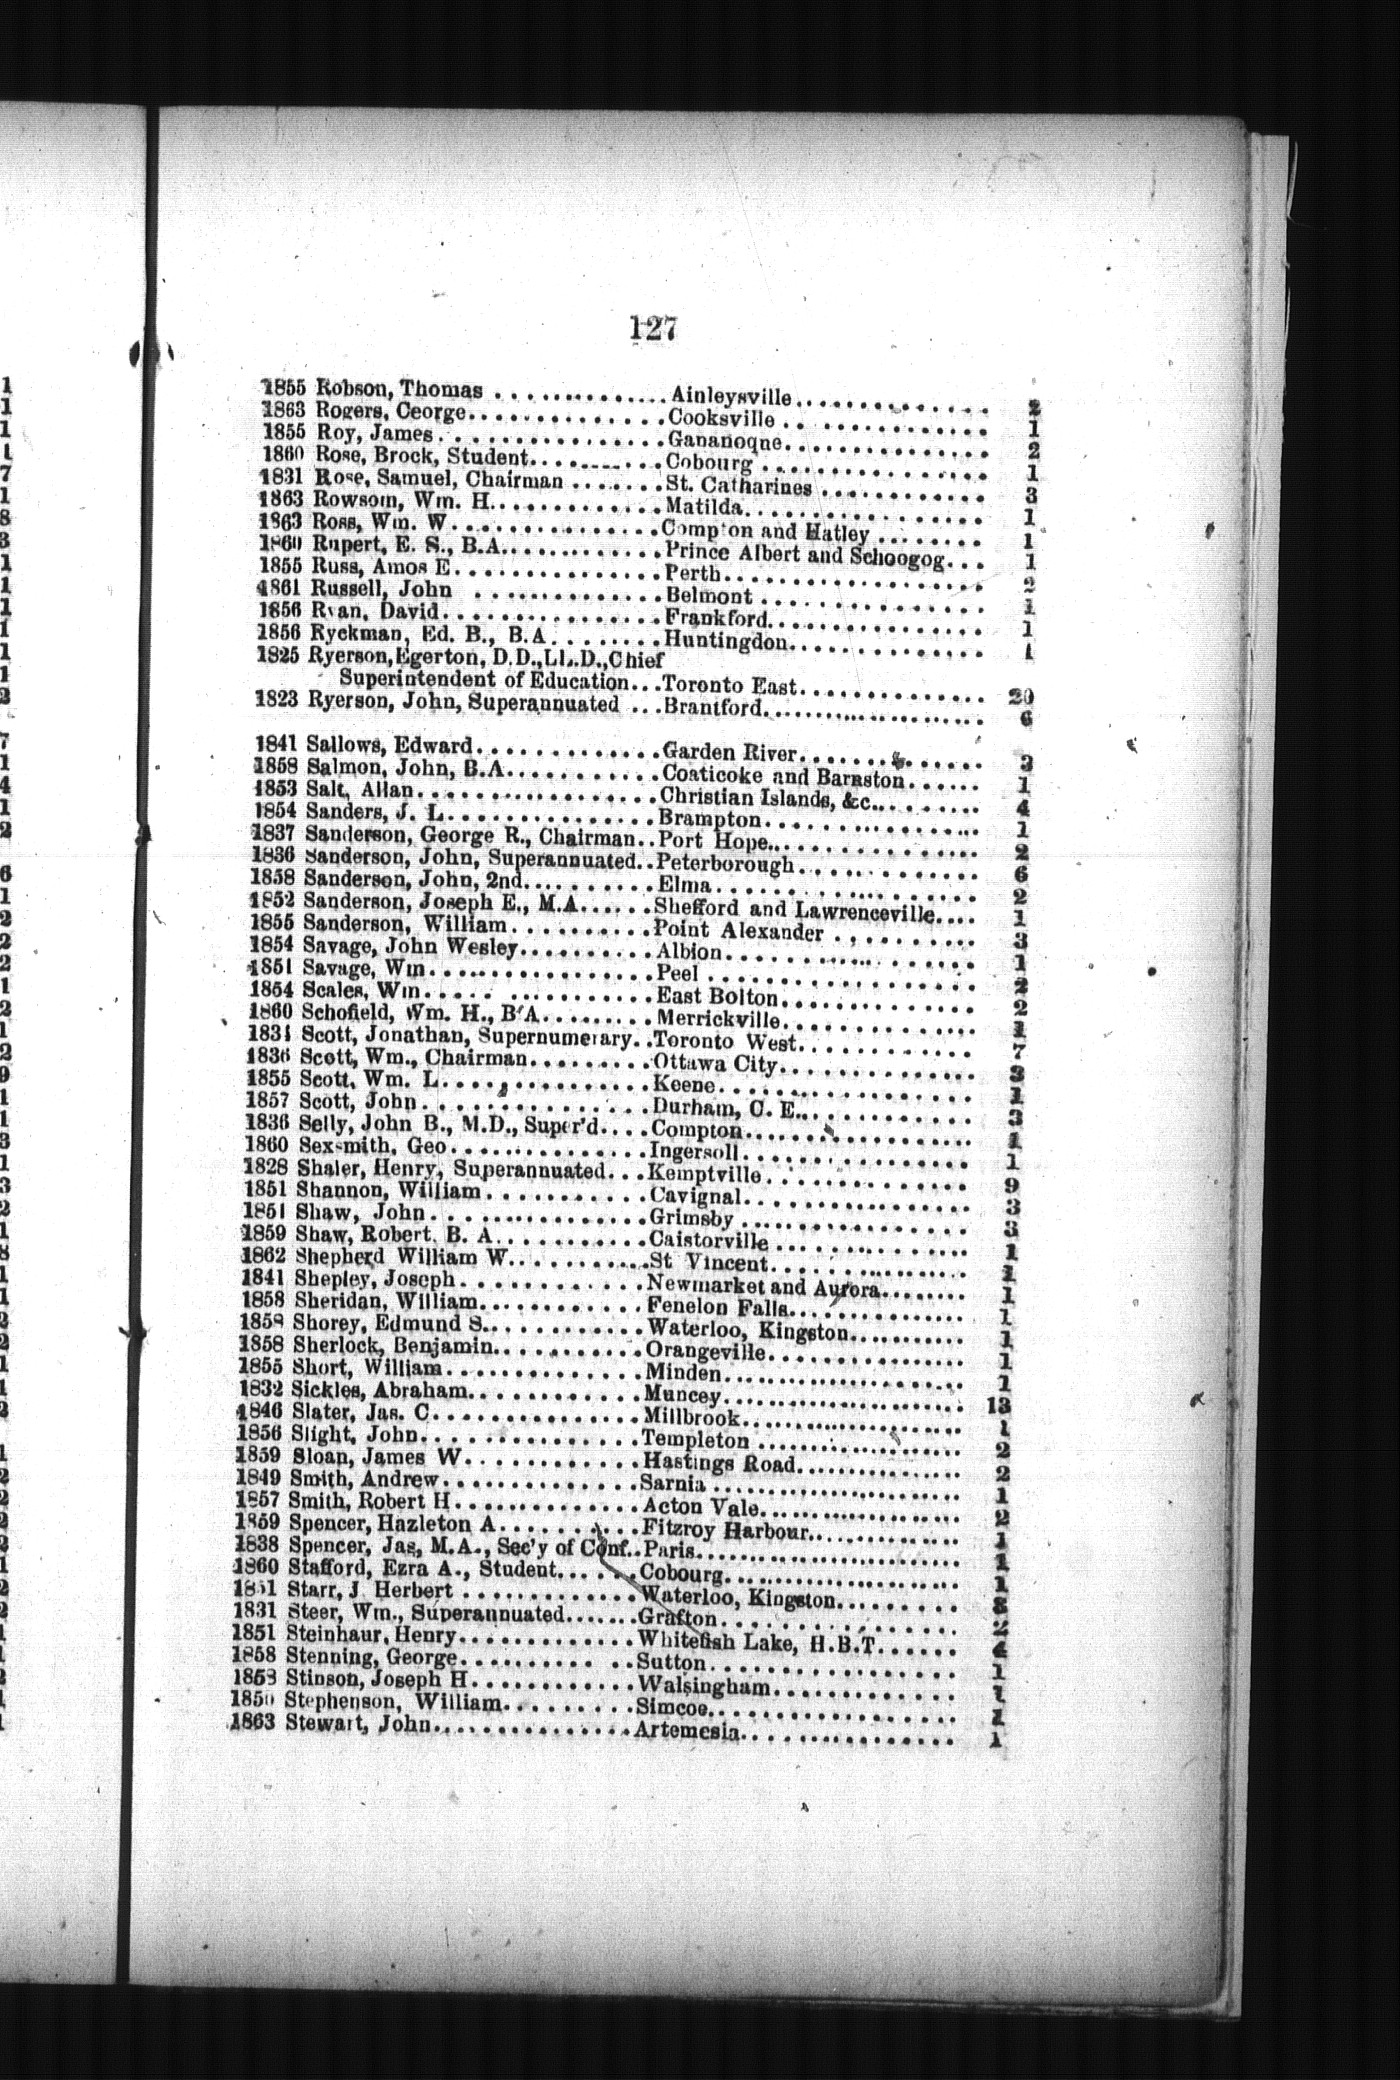 127
1855 Robson, Thomas ............... Ainleysville................ 2
1863 Rogers, Ceorge................Cooksville ................ 1
1855 Roy, James...................Gananoque................ 2
1860 Rose, Brock, Student...........Cobourg ................ 1
1831 Rose, Samuel, Chairman .......St. Catharines ............ 3
1863 Rowsom, Wm. H..............Matilda.................. 1
1863 Ross, Wm. W................Compton and Hatley ........ 1
1860 Rupert, E. S., B.A............Prince Albert and Schoogog... 1
1855 Russ, Amos E................Perth.................... 2
1861 Russell, John ..............Belmont ................. 1
1856 Ryan, David.................Frankford................. 1
1856 Ryckman, Ed. B., B.A........Huntingdon............... 1
1825 Ryerson, Egerton, D.D., LL.D., Chief
Superintendent of Education...Toronto East.............. 20
1823 Ryerson, John, Superannuated ...Brantford................. 6
1841 Sallows, Edward.............Garden River.............. 3
1858 Salmon, John, B.A...........Coaticoke and Barnston...... 1
1853 Salt, Allan..................Christian Islands, &c......... 4
1854 Sanders, J. L...............Brampton................ 1
1837 Sanderson, George R., Chairman..Port Hope................ 2
1836 Sanderson, John, Superannuated..Peterborough.............. 6
1858 Sanderson, John, 2nd..........Elma.................... 2
1852 Sanderson, Joseph E., M.A......Shefford and Lawrenceville.... 1
1855 Sanderson, William..........Point Alexander .......... 3
1854 Savage, John Wesley..........Albion.................. 1
1851 Savage, Wm................Peel ................... 2
1854 Scales, Wm..... ...........East Bolton.............. 2
1860 Schofield, Wm. H., B'A........Merrickville.............. 1
1831 Scott, Jonathan, Supernumerary..Toronto West............. 7
1836 Scott, Wm., Chairman.........Ottawa City.............. 3
1855 Scott, Wm. L...............Keene................... 1
1857 Scott, John................Durham, C. E............. 3
1836 Selly, John B., M.D., Super'd....Compton................ 1
1860 Sexsmith, Geo..............Ingersoll................ 1
1828 Shaler, Henry, Superannuated...Kemptville............... 9
1851 Shannon, William...........Cavignal................ 3
1851 Shaw, John................Grimsby ................ 3
1859 Shaw, Robert. B. A..........Caistorville .............. 1
1862 Shepherd William W..........St Vincent.............. 1
1841 Shepley, Joseph.............Newmarket and Aurora........ 1
1858 Sheridan, William............Fenelon Falls............. 1
1858 Shorey, Edmund S............Waterloo, Kingston.......... 1
1858 Sherlock, Benjamin...........Orangeville............... 1
1855 Short, William..............Minden.................. 1
1832 Sickles, Abraham............Muncey.................. 13
1846 Slater, Jas. C...............Millbrook................ 1
1856 Slight, John................Templeton ............... 2
1859 Sloan, James W.............Hastings Road............. 2
1849 Smith, Andrew..............Sarnia .................. 1
1857 Smith, Robert H.............Acton Vale............... 2
1859 Spencer, Hazleton A..........Fitzroy Harbour............ 1
1838 Spencer, Jas, M.A., Sec'y of Conf..Paris.................... 1
1860 Stafford, Ezra A., Student......Cobourg................. 1
1851 Starr, J Herbert .............Waterloo, Kingston......... 8
1831 Steer, Wm., Superannuated.......Grafton.................. 2
1851 Steinhaur, Henry.............Whitefish Lake, H.B.T...... 4
1858 Stenning, George.......... ..Sutton................... 1
1858 Stinson, Joseph H............Walsingham.............. 1
1850 Stephenson, William.........Simcoe.................. 1
1863 Stewart, John...............Artemesia................ 1